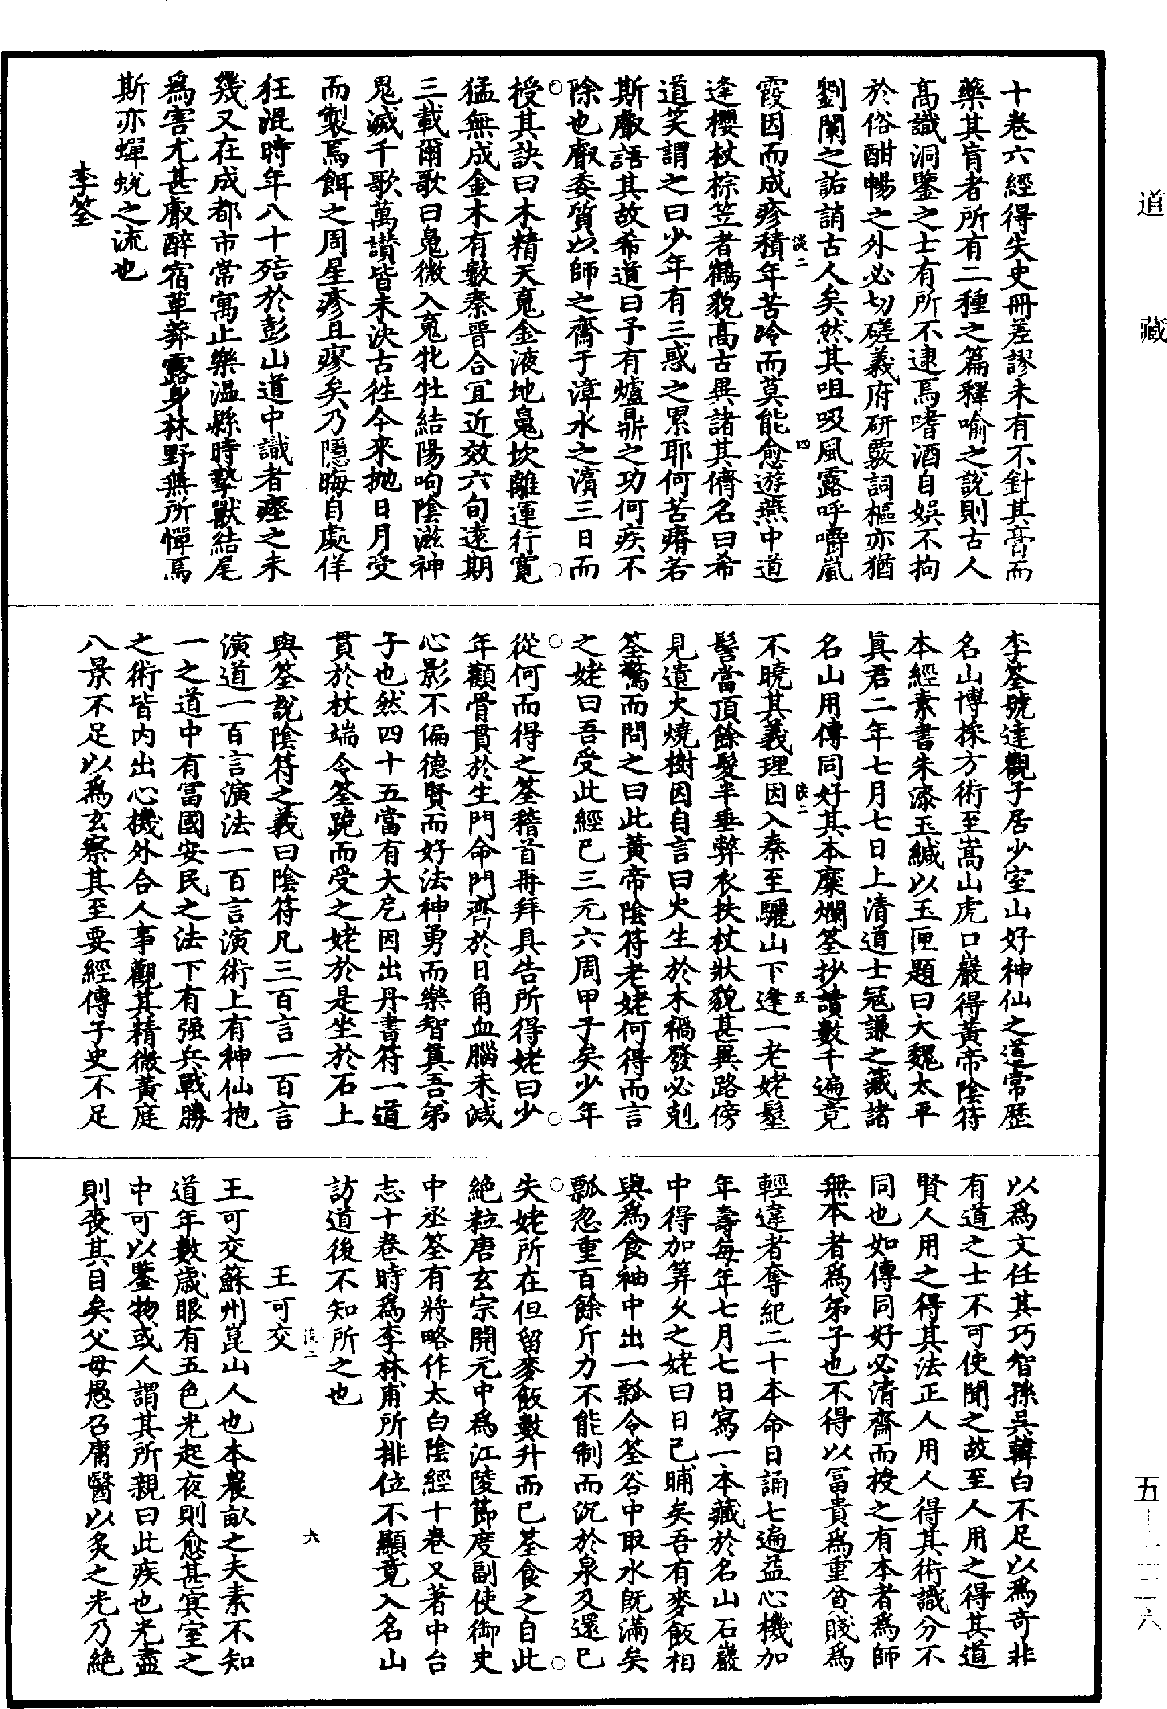 道藏
五—三二六
十卷六經得失史冊差謬未有不針其膏而
藥其肓者所有二種之篇釋喻之說則古人
高識洞鑒之士有所不逮焉嗜酒自娛不拘
於俗酣暢之外必切磋義府研覈詞樞亦猶
劉闌之詬誚古人矣然其咀吸風露呼嚼嵐
淡二
四
霞因而成疹積年苦冷而莫能愈遊燕中道
逢櫻杖椶笠者鶴貌高古異諸其儕名曰希
道笑謂之曰少年有三惑之累耶何苦瘠若
斯叡語其故希道曰予有爐鼎之功何疾不
除也叡委質以師之齋于漳水之濱三日而
授其訣曰木精天䰟金液地䰟坎離運行寬
猛無成金木有數秦晉合宜近效六旬遠期
三載爾歌曰䰟微入䰟牝牡結陽呴陰滋神
鬼滅千歌萬讃皆未決古往今來抛日月受
而製焉餌之周星疹且瘳矣乃隱晦自處佯
狂混時年八十㱔於彭山道中識者瘞之未
幾又在成都市常寓止樂温縣時摯獸結尾
為害尤甚叡醉宿草莽露身林野無所憚焉
斯亦蟬蛻之流也
李筌
李筌號達觀子居少室山好神仙之道常歷
名山博採方術至嵩山虎口巖得黃帝陰符
本經素書朱漆玉緘以玉匣題曰大魏太平
真君二年七月七日上清道士寇謙之藏諸
名山用傳同好其本糜爛筌抄讀數千遍竟
淡二
五
不曉其義理因入秦至驪山下逢一老姥髽
髻當頂餘髮半垂弊衣扶杖狀貌甚異路傍
見遺火燒樹因自言曰火生於木禍發必剋
筌驚而問之曰此黃帝陰符老姥何得而言
之姥曰吾受此經已三元六周甲子矣少年
從何而得之筌稽首再拜具告所得姥曰少
年顴骨貫於生門命門齊於日角血腦未減
心影不偏德賢而好法神勇而樂智真吾弟
子也然四十五當有大厄因出丹書符一道
貫於杖端令筌跪而受之姥於是坐於石上
與筌說陰符之義曰陰符凡三百言一百言
演道一百言演法一百言演術上有神仙抱
一之道中有富國安民之法下有强兵戰勝
之術皆内出心機外合人事觀其精微黃庭
八景不足以為玄察其至要經傳子史不足
以為文任其巧智孫吳韓白不足以為奇非
有道之士不可使聞之故至人用之得其道
賢人用之得其法正人用人得其術識分不
同也如傳同好必清齋而授之有本者為師
無本者為弟子也不得以冨貴為重貧賤為
輕違者奪紀二十本命日誦七遍益心機加
年壽每年七月七日寫一本藏於名山石巖
中得加筭久之姥曰日已晡矣吾有麥飯相
與為食袖中出一瓢令筌谷中取水既滿矣
瓢忽重百餘斤力不能制而沉於泉及還已
失姥所在但留麥飯數升而已筌食之自此
絶粒唐玄宗開元中為江陵節度副使御史
中丞筌有將略作太白陰經十卷又著中台
志十卷時為李林甫所排位不顯竟入名山
訪道後不知所之也
淡二
六
王可交
王可交蘇州崑山人也本農畝之夫素不知
道年數歲眼有五色光起夜則愈甚冥室之
中可以鑒物或人謂其所親曰此疾也光盡
則喪其目矣父母愚召庸醫以炙之光乃絶